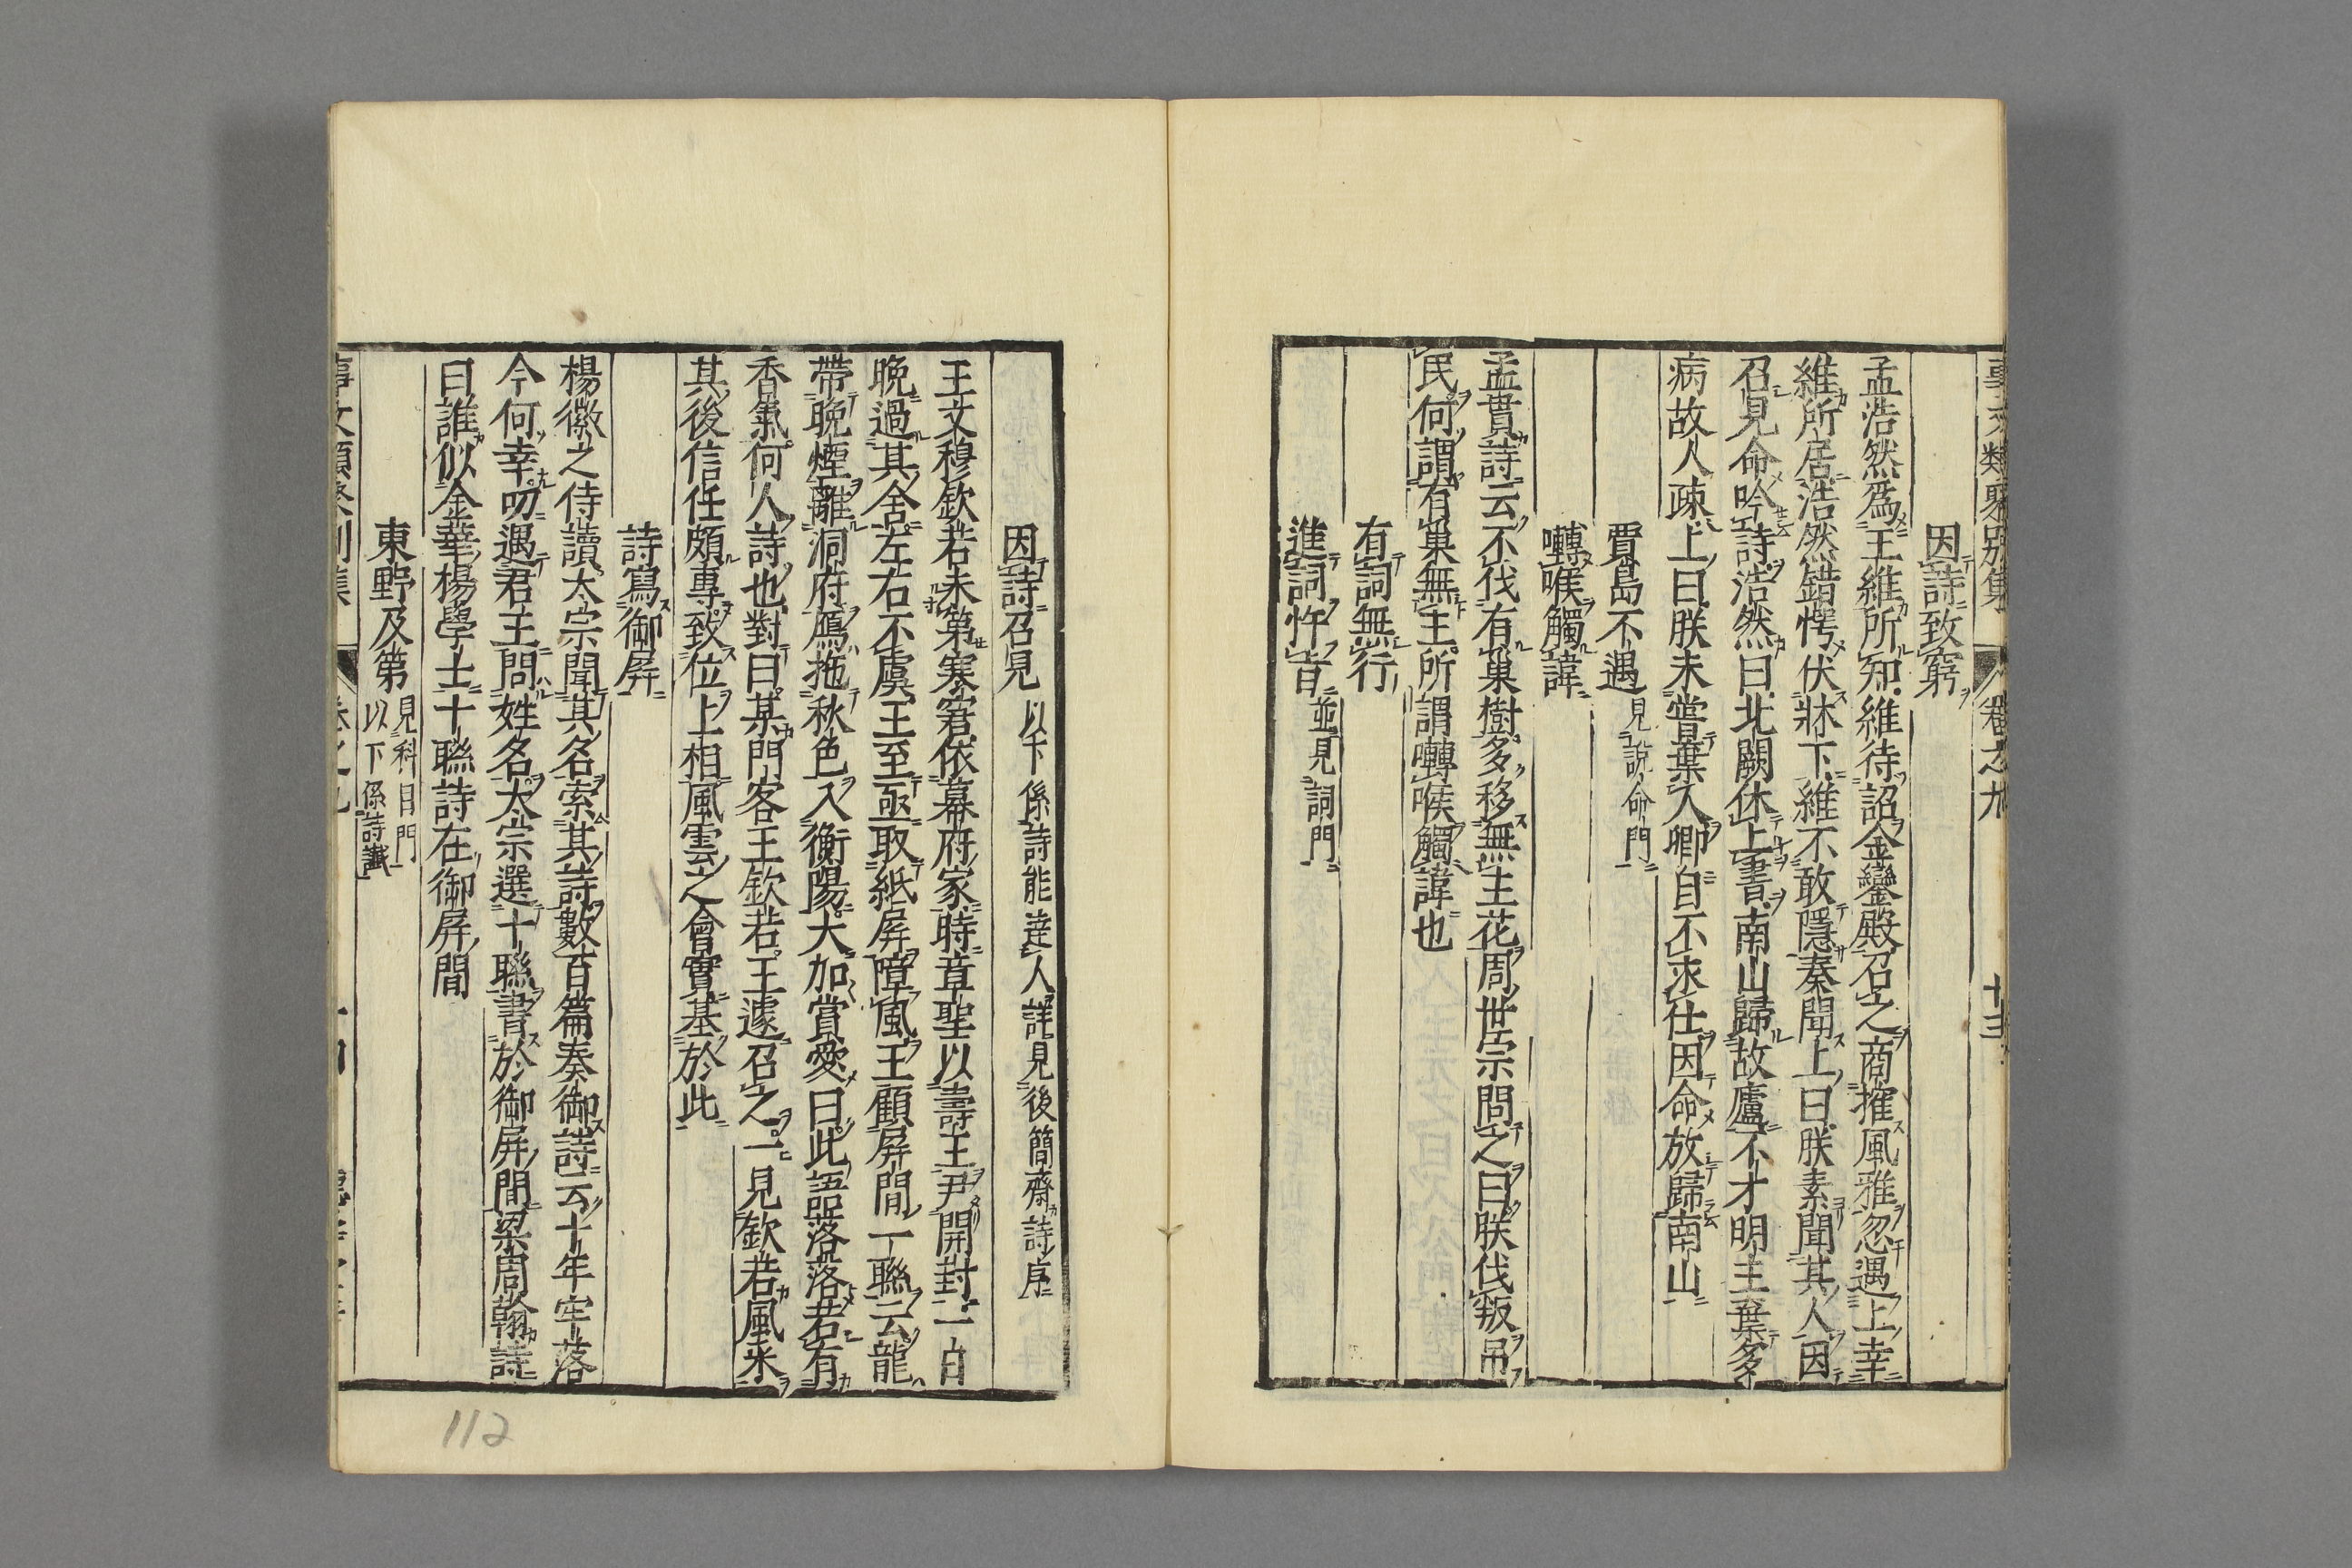 事文類聚別集 卷之九 十三
因詩致窮
孟浩然爲王維所知維待詔金鑾殿召之商搉風雅忽遇上幸
維所居浩然錯愕伏牀下維不敢隱奏聞上曰朕素聞其人因
召見命吟詩浩然曰北闕休上書南山歸故廬不才明主棄多
病故人疎上曰朕未嘗棄人卿自不求仕因命放歸南山
賈島不遇 見說命門
囀喉觸諱
孟貫詩云不伐有巢樹多移無主花周世宗問之曰朕伐叛吊
民何謂有巢無主所謂囀喉觸諱也
有詞無行
進詞忤旨 並見詞門
因詩召見 以下係詩能達人詳見後簡齋詩序
王文穆欽若未第寒窘依幕府家時章聖以壽王尹開封一日
晩過其舍左右不虞王至亟取紙屏障風王顧屏間一聯云龍
帶晩煙離洞府鴈拖秋色入衡陽大加賞愛曰此語落落若有
香氣何人詩也對曰某門客王欽若王遽召之一見欽若風采
其後信任頗專致位上相風雲之會實基於此
詩寫御屏
楊徽之侍讀太宗聞其名索其詩數百篇奏御詩云十年牢落
今何幸叨遇君王問姓名太宗選十聯書於御屏間梁周翰詩
曰誰似金華楊學士十聯詩在御屏間
東野及第 見科目門
以下係詩讖